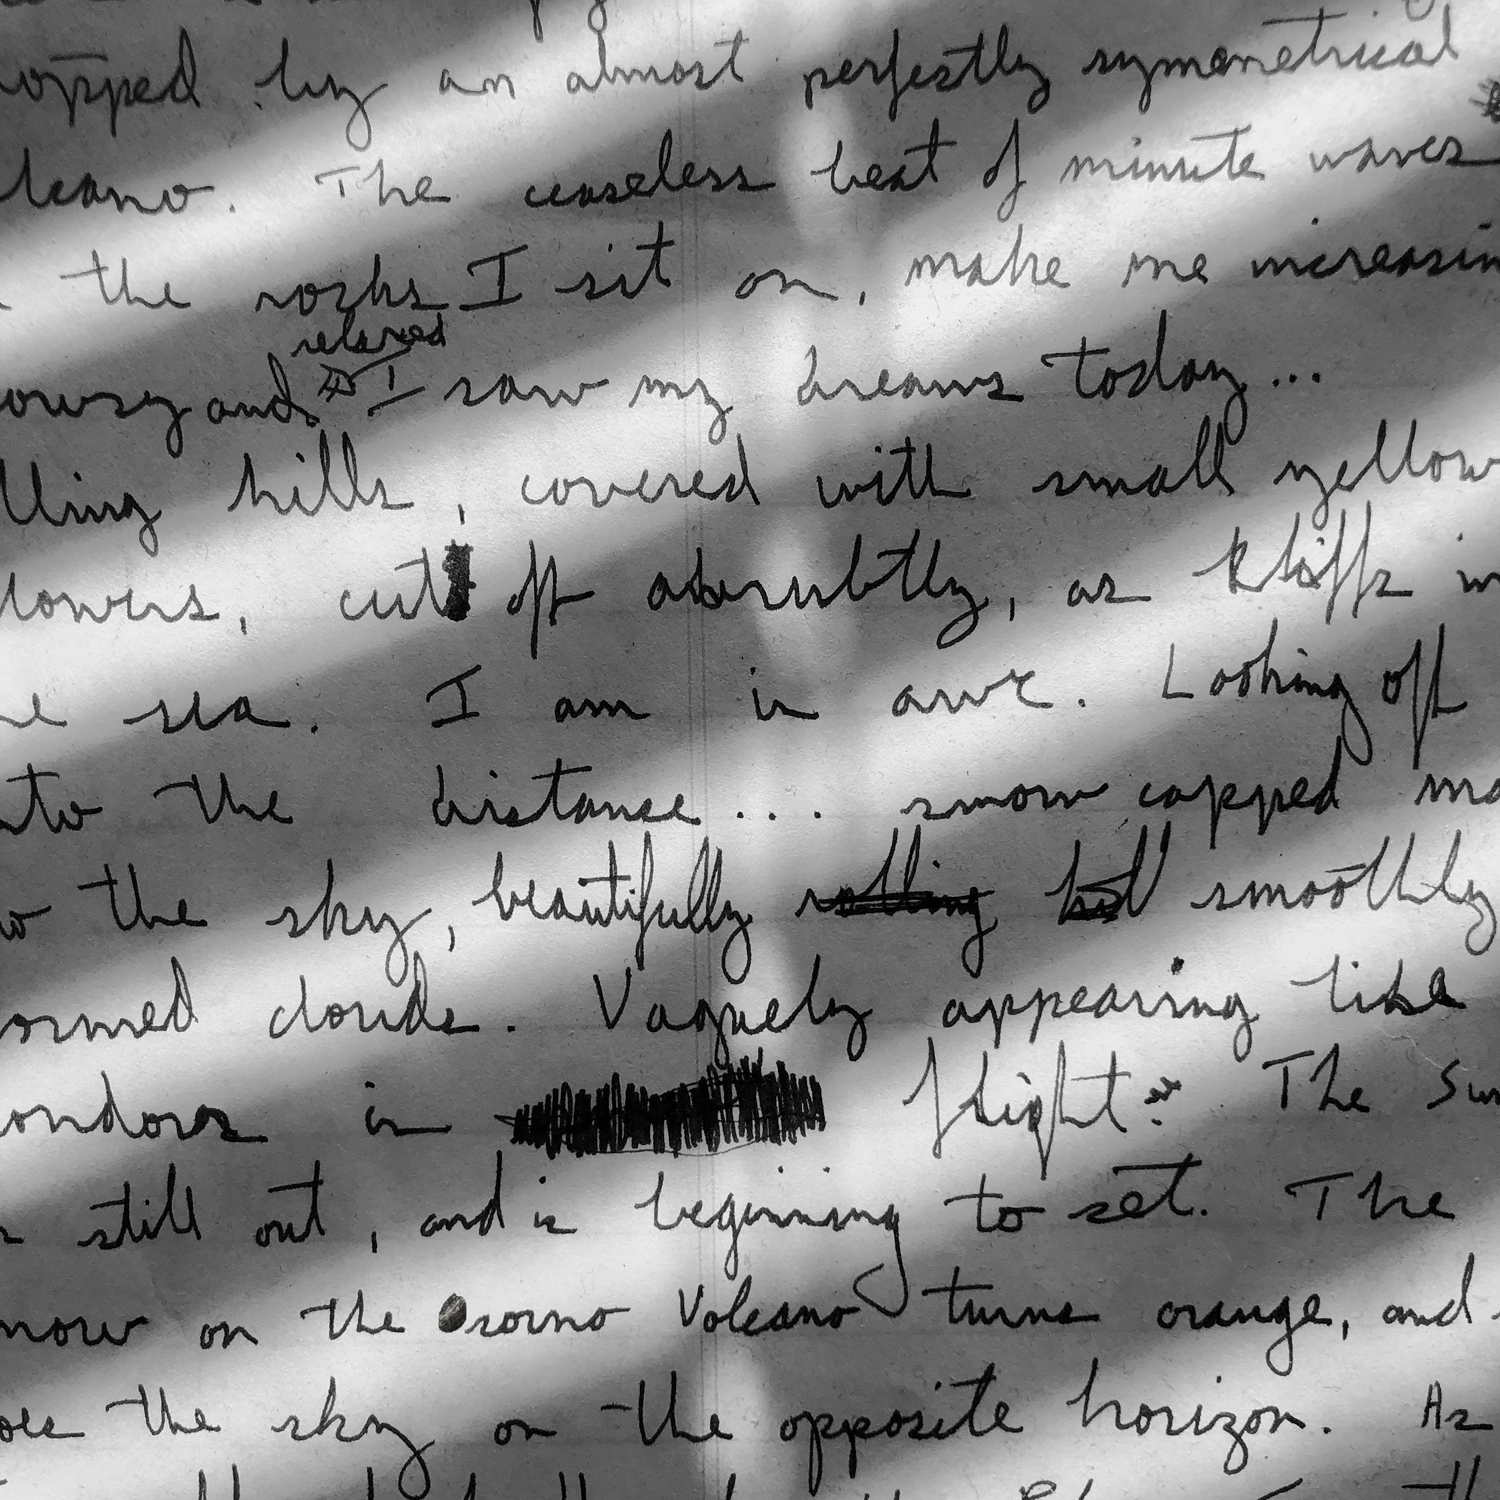 opped by an almost perfestly symmetrical
lcano. The ceaseless beat of minute waves
the rocks I sit on, make me increasin
relaxed
owsy and I saw my dreams today...
lling hills, covered with small yellow
lowers, cut off abrubtly, as kliffs in
he sea. I am in awe. Looking off
nto the distance... snow capped mo
o the sky, beautifully rolling smoothly
ormed clouds. Vaguely appearing like
ondors in flight. The Sun
still out, and is beginning to set. The
now on the Osorno Volcano turns orange, and
oes the sky on the opposite horizon. As